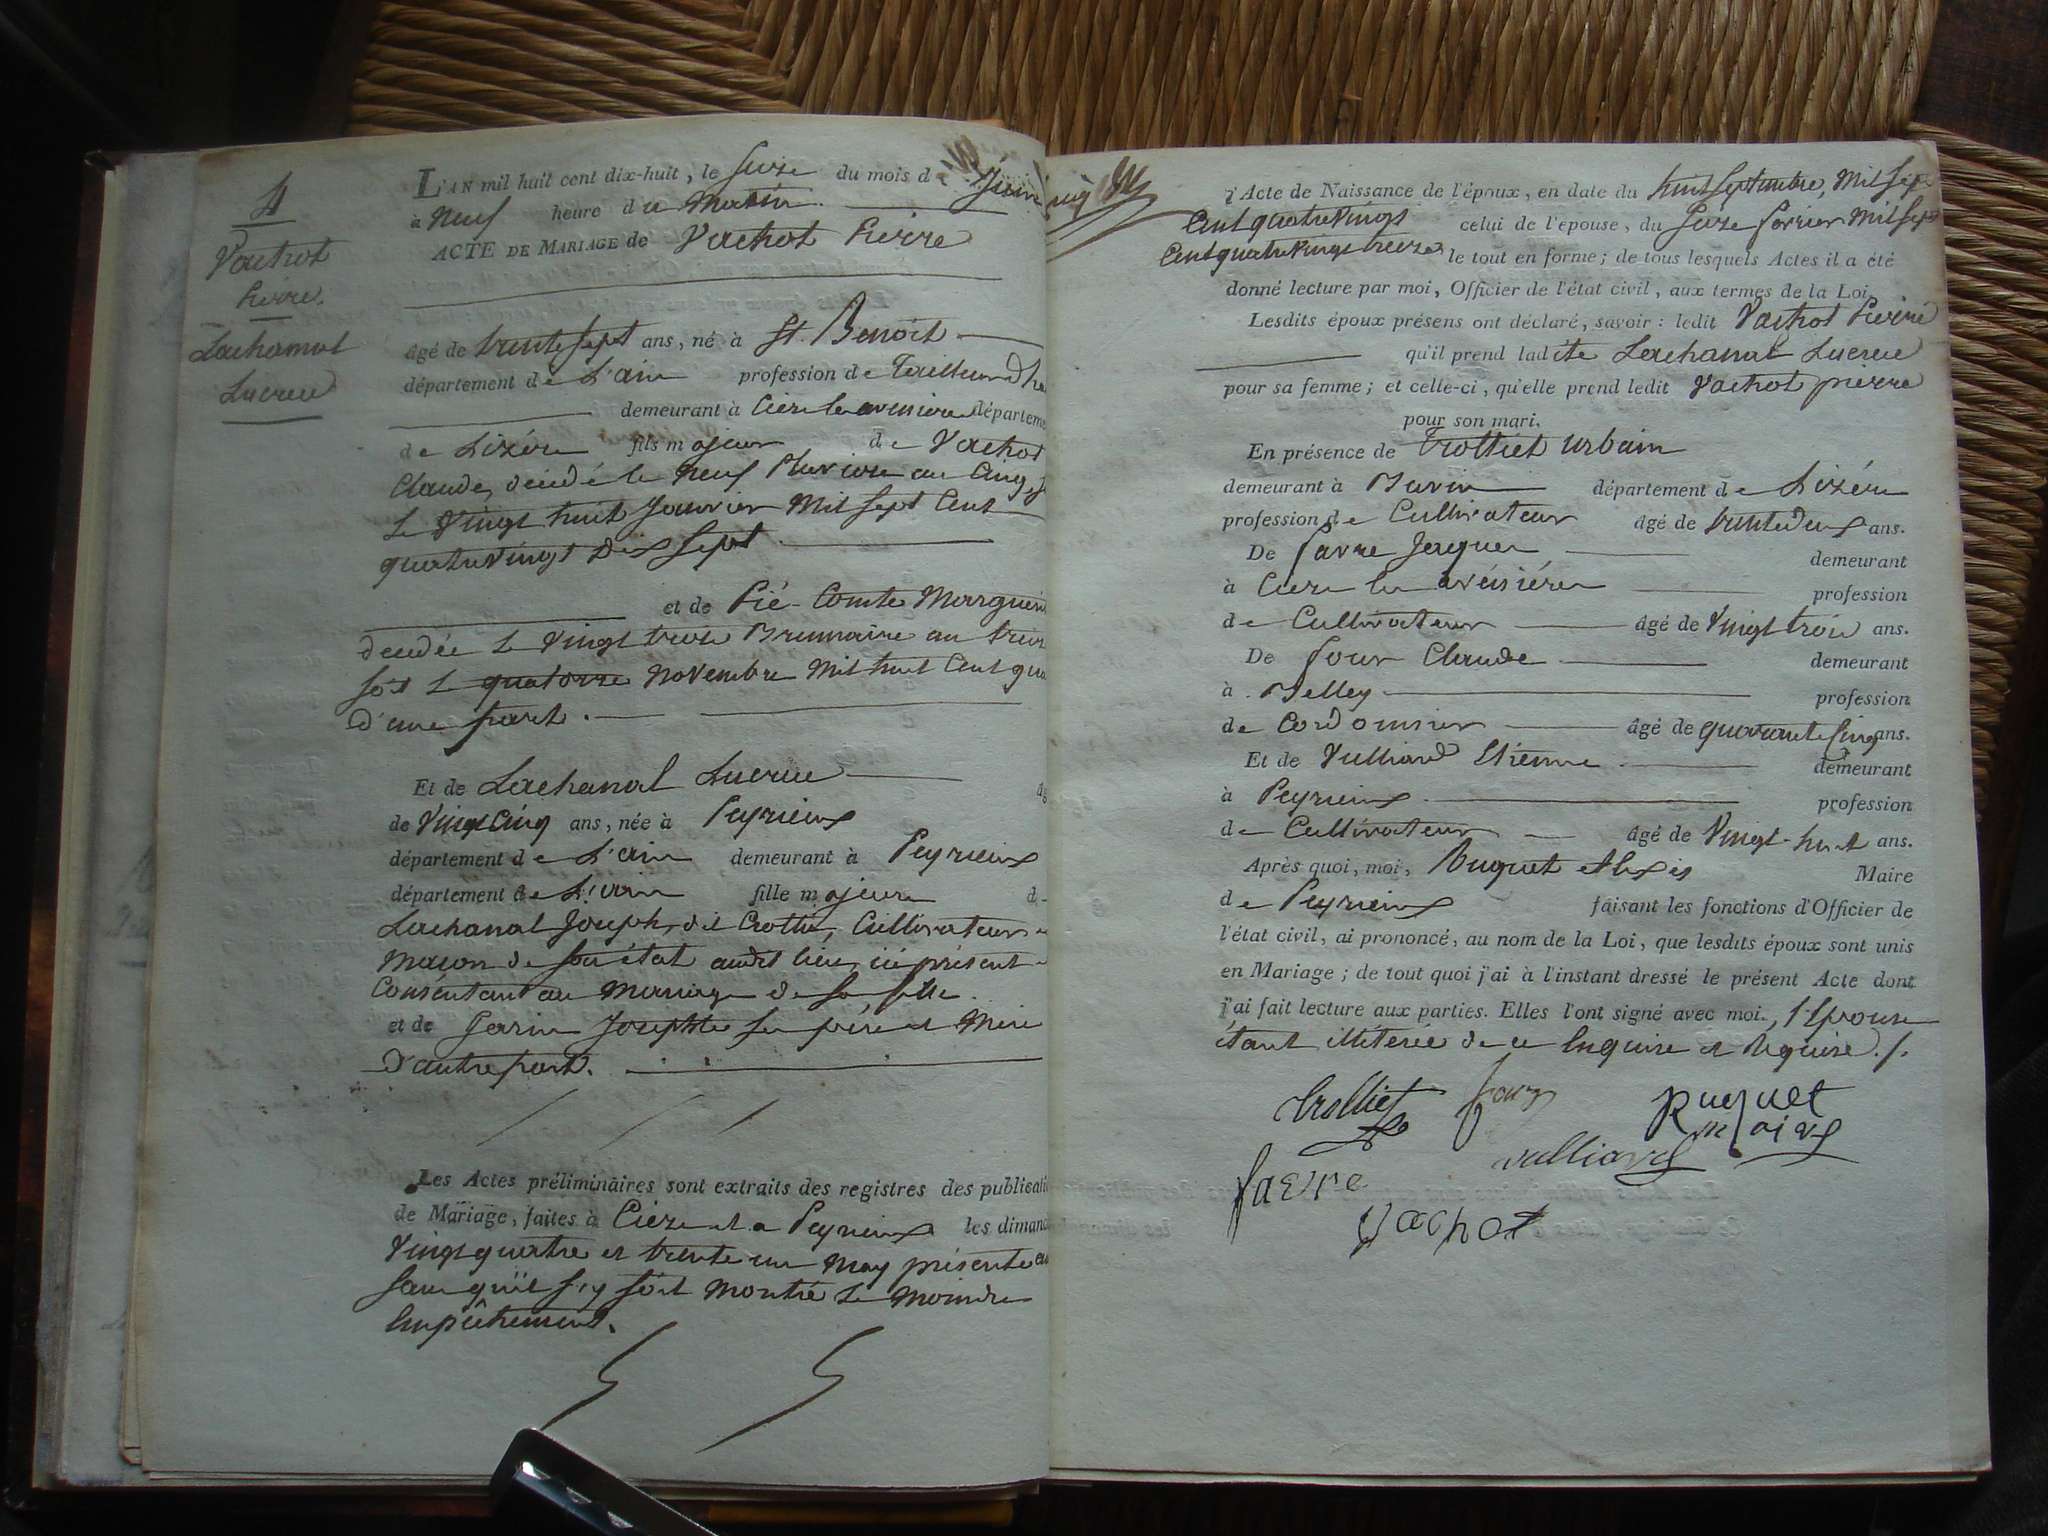 4
Vachot
Pierre.
Lachanal
Lucrece
L'AN mil huit cent dix-huit, le seize du mois de Juin
à neuf heure du matin.
ACTE DE MARIAGE de Vachot Pierre
âgé de trente sept ans, né à St. Benoit
département de L'ain profession de Tailleur d'ha
demeurant à Cieze la aveniere départeme
de Lizére fils majeur de Vachot
Claude, décédé le neuf Pluviose an Cinq,
le vingt huit Janvier Mil sept Cent
quatre vingt dix sept.
et de Pié-Comte Marguerit
décédée le vingt trois Brumaire an treize
soit le quatorze novembre mil huit Cent qua
d'une part.
Et de Lachanal Lucrece âg
de vingt cinq ans, née à Peyrieux
département de L'ain demeurant à Peyrieux
département de L'ain fille majeure d
Lachanal Joseph, dit Crottie, Cultivateur
maçon de son état audit lieu, ici présent
Consentant au mariage de sa fille.
et de Perrin Josephte Ses père et Mere
D'autre part.
Les Actes préliminaires sont extraits des registres des publicati
de Mariage, faites à Cieze et a Peyrieux les dimanc
vingt quatre et trente un may présente an
sans qu'il s'y soit montré le moindre
Empêchement.
l'Acte de Naissance de l'époux, en date du huit septembre, mil sept
Cent quatre vingts celui de l'epouse, du seize fevrier mil sept
Cent quatre vingt treize le tout en forme; de tous lesquels Actes il a été
donné lecture par moi, Officier de l'état civil, aux termes de la Loi.
Lesdits époux présens ont déclaré, savoir: ledit Vachot Pierre
qu'il prend ladite Lachanal Lucrece
pour sa femme; et celle-ci, qu'elle prend ledit Vachot pierre
pour son mari.
En présence de Trolliet Urbain
demeurant à département de Lizére
profession de Cultivateur âgé de trente deux ans.
De Favre Jacques demeurant
à Cieze la avéniére profession
de Cultivateur âgé de vingt trois ans.
De Four Claude demeurant
à Belley profession
de Cordonnier âgé de quarante Cinq ans.
Et de Vulliard Etienne demeurant
à Peyrieux profession
de Cultivateur âgé de vingt-huit ans.
Après quoi, moi, Ruquet Alexis Maire
de Peyrieux faisant les fonctions d'Officier de
l'état civil, ai prononcé, au nom de la Loi, que lesdits époux sont unis
en Mariage; de tout quoi j'ai à l'instant dressé le présent Acte dont
j'ai fait lecture aux parties. Elles l'ont signé avec moi, l'Epouse
étant illéterée de ce Enquise et Requise./.
trolliet four Ruquet
maire
vulliard
favre
Vachot